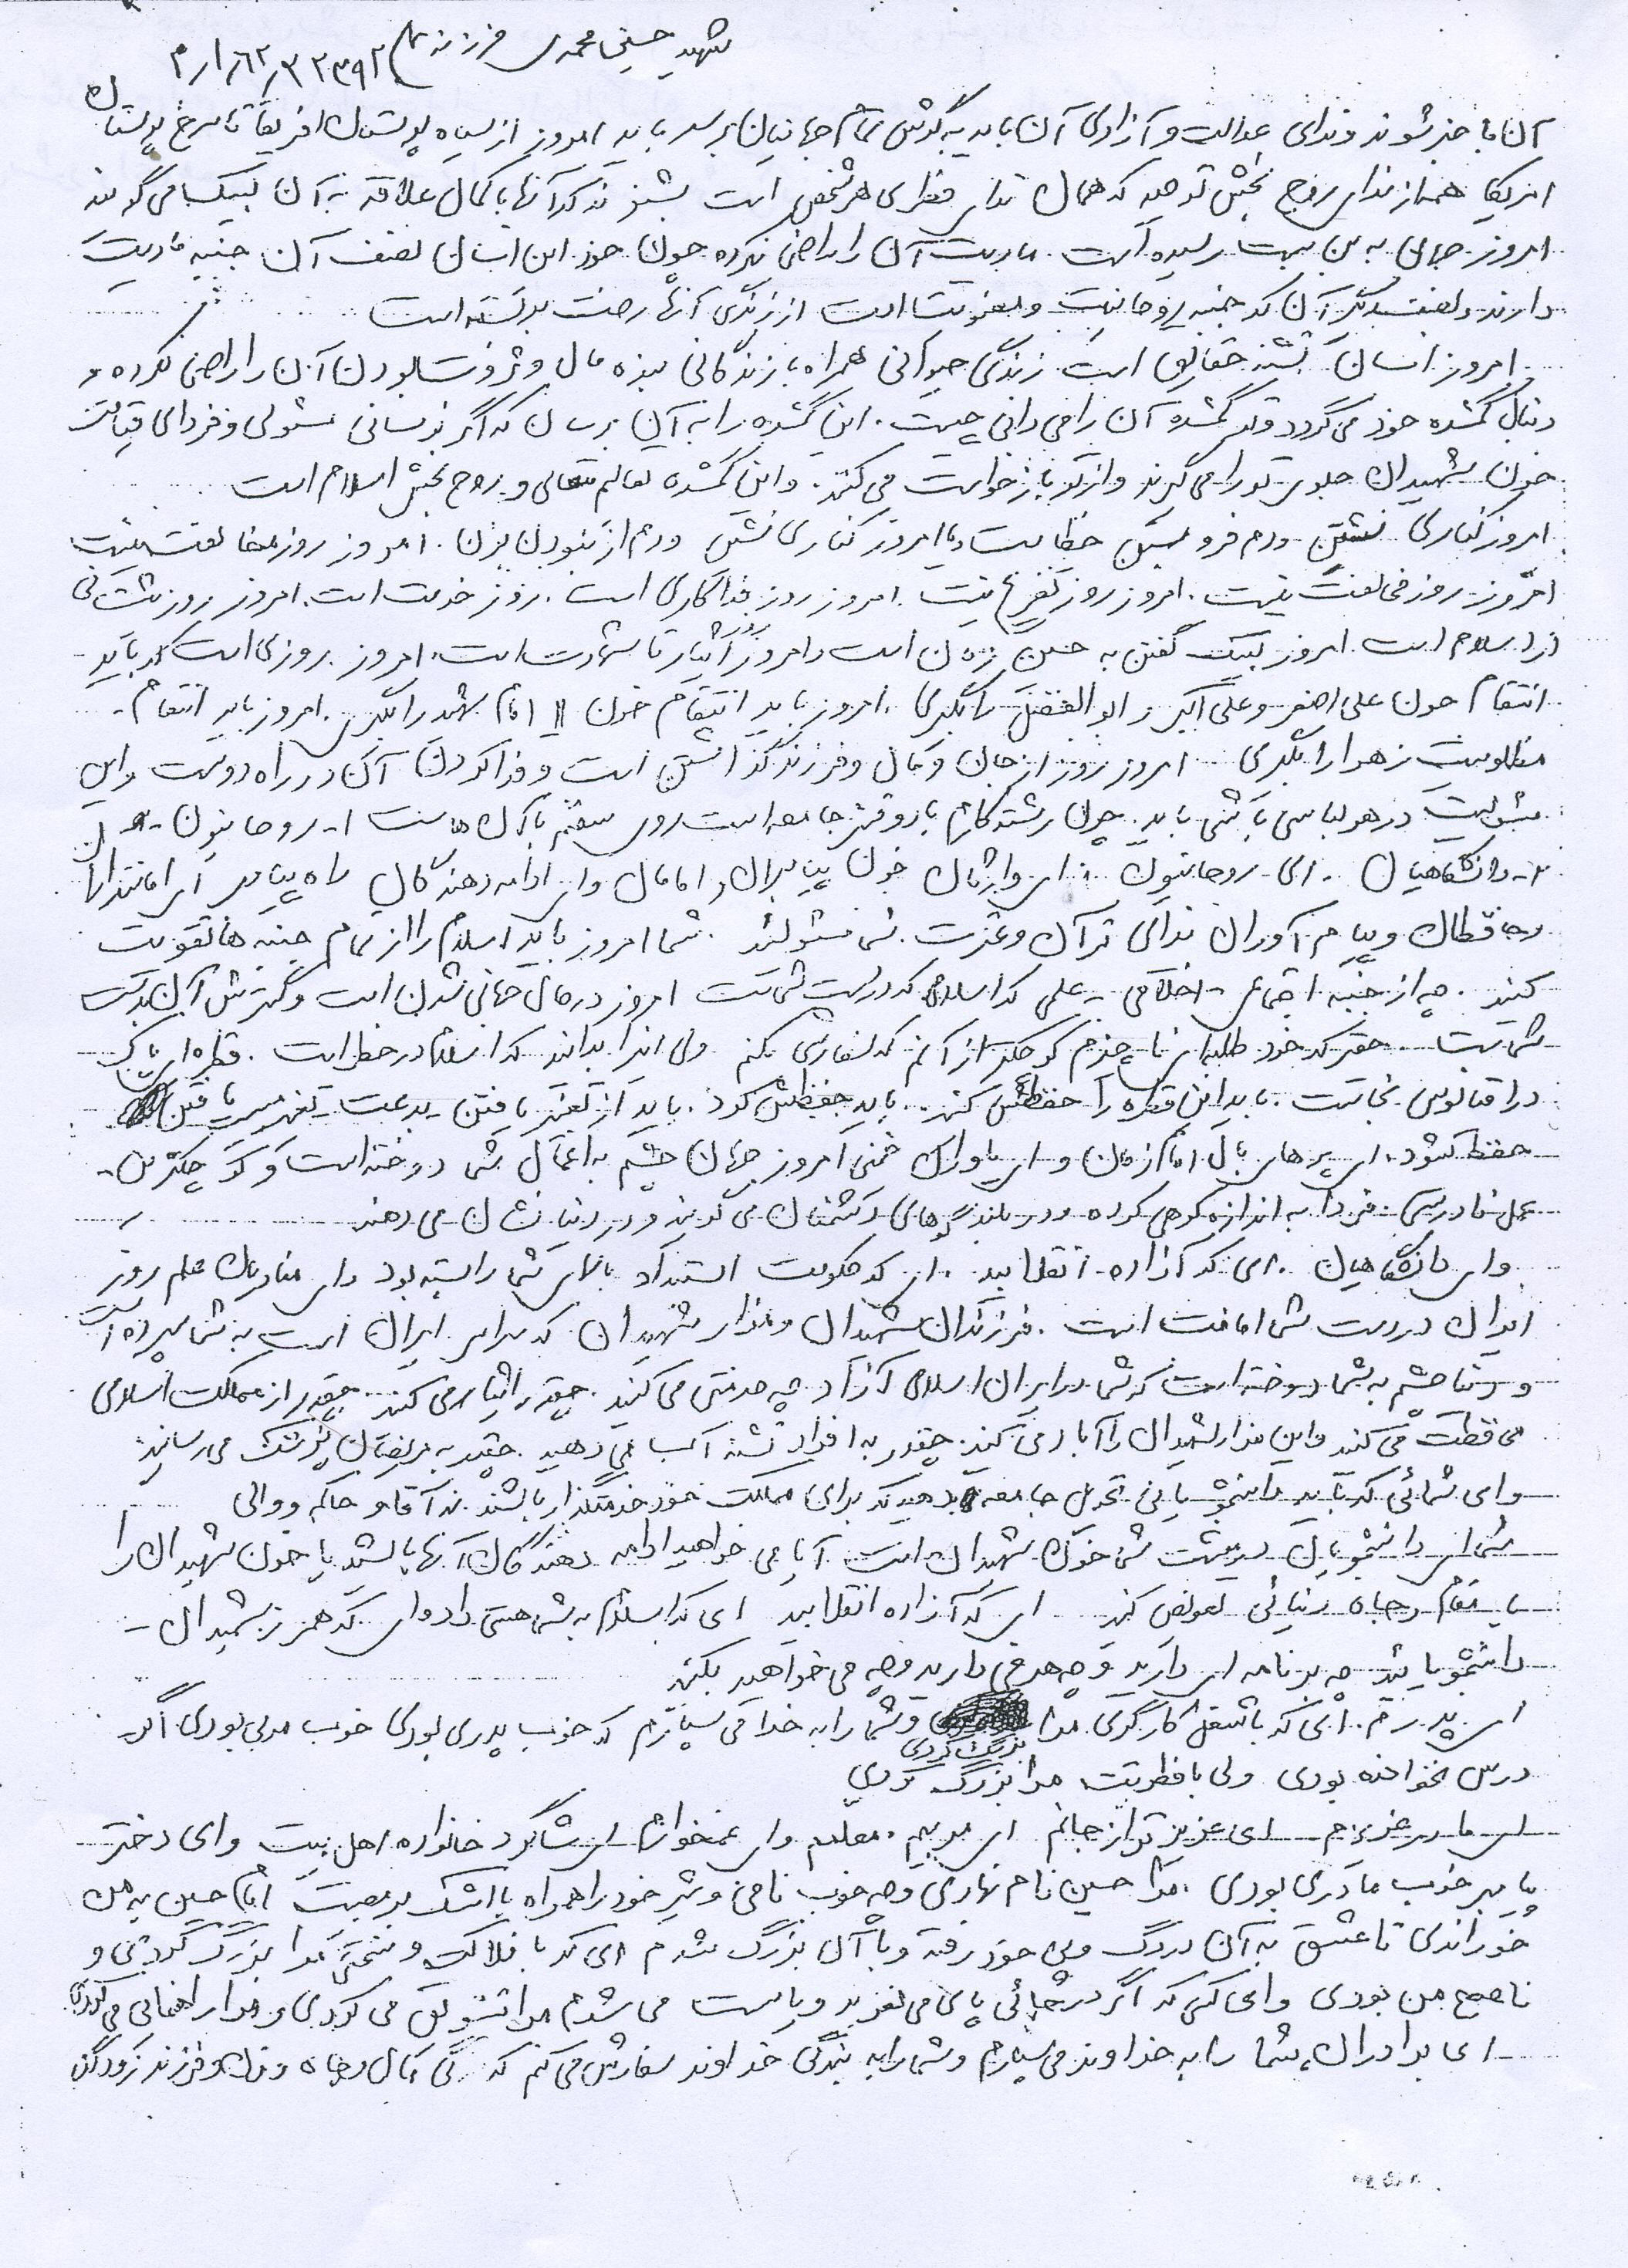 شهید حسین محمدی فرزند
آن با خبر شوند و ندای عدالت و آزادی آن باید به گوش تمام جهانیان برسد باید امروز از سیاه پوستان افریقا تا سرخ پوستان
امریکا همه از ندای روح بخش توحید که همان ندای فطری هر شخص است بشنوند که آنها با کمال علاقه به آن لبیک می گویند
امروز جهان به بن بست رسیده است. مادیت آن را راضی نکرده چون خود این انسان نصف آن جنبه مادیت
دارند و نصف دیگر آن که جنبه روحانیت و معنویت است از زندگی آنها رخت بر بسته است
امروز انسان تشنه حقایق است زندگی حیوانی همراه با زندگانی مال و ثروت آن را راضی نکرده و
دنبال گمشده خود می گردد و تو گمشده آن را می دانی چیست. این گمشده را به آن برسان که اگر نرسانی مسئولی و فردای قیامت
خون شهیدان جلوی تو را می گیرند و از تو باز خواست می کنند. و این گمشده تعالیم متعالی و روح بخش اسلام است
امروز کناری نشستن و دم فرو بستن خطاست و یا امروز کناری نشستن و دم از نبودن بزن. امروز روز مخالفت نیست
امروز روز مخالفت نیست. امروز روز تفریح نیست امروز روز فداکاری است. روز خدمت است. امروز روز
از اسلام است امروز لبیک گفتن به حسین زمان است و امروز روز ایثار تا شهادت است. امروز روزی است که باید
انتقام خون علی اصغر و علی اکبر و ابوالفضل را بگیری. امروز باید انتقام خون 11 امام شهید را بگیری. امروز باید انتقام
مظلومیت زهرا را بگیری امروز روز از جان و مال و فرزند گذشتن است و فدا کردن آن در راه دوست و این
مسئولیت در هر لباسی باشی باید. چون رشته کلام با دو قشر جامعه است روی سخنم با آن هاست 1- روحانیون
2- دانشگاهیان. ای روحانیون. ای وارثان خون پیامبران و امامان و ای ادامه دهندگان راه پیامبر ای امانتدارها
و حافظان و پیام آوران ندای قرآن و عترت. شما مسئولید. شما امروز باید اسلام را از تمام جنبه ها تقویت
کنید. چه از جنبه اجتماعی - اخلاقی - علمی که اسلام که در دست شماست امروز در حال جهانی شدن است و گسترش آن بدست
شماست. حقیر که خود طلبه ای ناچیزم کوچکتر از آنم که سفارش کنم ولی این را بدانید که اسلام در خطر است. قطره ای پاک
در اقیانوس نجاست. باید این قطره را حفظش کنید. باید حفظش کرد. باید از تغییر یافتن - بدعت - تغییر یافتن
حفظ شود. ای سربازهای امام زمان و ای یاوران خمینی امروز جهان چشم به اعمال شما دوخته است و کوچکترین
عمل نادرستی. فردا به اندازه کوهی کرده و در بلندگوهای دشمنان می گویند و در دنیا نشان می دهند
و ای دانشگاهیان. ای که آزاده انقلابید. ای که حکومت استبداد بالهای شما را بسته بود و ای منادیان علم روز
ایران در دست شما امانت است. فرزندان شهیدان و مزار شهیدان که سراسر ایران است به شما سپرده است
و دنیا چشم به شما دوخته است که شما در ایران اسلامی آزاد چه خدمتی می کنید. چقدر ایثار می کنید. چقدر از مملکت اسلامی
محافظت می کنید و این مزار شهیدان را آباد می کنید. چقدر به افراد تشنه آب می دهید. چقدر به مریضان پزشک می رسانید
و ای شمائی که باید دانشجویانی تحویل جامعه بدهید که برای مملکت خود خدمتگذار باشند. نه آقا و حاکم و والی
شما ای دانشجویان در پشت شما خون شهیدان است آیا می خواهید ادامه دهندگان آنها باشید یا خون شهیدان را
با مقام و جاه دنیائی تعویض کنید. ای که آزاده انقلابید ای که اسلام به شما هستی داد و ای که همرزم شهیدان
دانشجویانید چه برنامه ای دارید و چه هدفی دارید و چه می خواهید بکنید
ای پدرم. ای که با شغل کارگری مرا بزرگ کردی و شما را به خدا می سپارم که خوب پدری بودی خوب مربی بودی اگر
درس نخوانده بودی ولی با فطرتت مرا بزرگ کردی
ای مادر عزیزم ای عزیزتر از جانم ای مربیم. معلمم و ای غمخوارم ای شاگرد خانواده اهل بیت و ای دختر
پیامبر خوب مادری بودی. مرا حسین نام نهادی و چه خوب نامی و شیر خود را همراه با اشک بر مصیبت امام حسین به من
خوراندی تا عشق به آن در رگ و پی خود رفته و با آن بزرگ شدم ای که با فلاکت و سختی مرا بزرگ کردی و
ناصح من بودی و ای کسی که اگر در جائی پای می لغزید و یا سست می شدم مرا تشویق می کردی و مرا راهنمائی می کردی
ای برادران، شما را به خداوند می سپارم و شما را به بندگی خداوند سفارش می کنم که مال و جاه و فرزند زودگذر